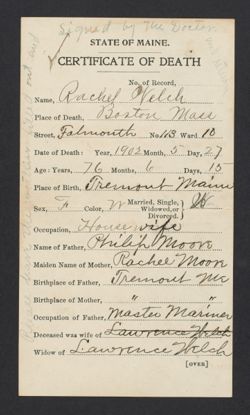 Signed by The Doctor
STATE OF MAINE.
CERTIFICATE OF DEATH
No. of Record,
Name, Rachel Welch
Place of Death, Boston Mass
Street, Falmouth No. 113 Ward, 10
Date of Death: Year, 1902 Month, 5 Day, 27
Age: Years, 76 Months, 6 Days, 15
Place of Birth, Tremont Maine
Sex, F Color, W Married, Single, Widowed, or Divorced. } W
Occupation, Housewife
Name of Father, Philip Moon
Maiden Name of Mother, Rachel Moon
Birthplace of Father, Tremont Me
Birthplace of Mother, " "
Occupation of Father, Master Mariner
Deceased was wife of Lawrence Welch
Widow of Lawrence Welch
[OVER]